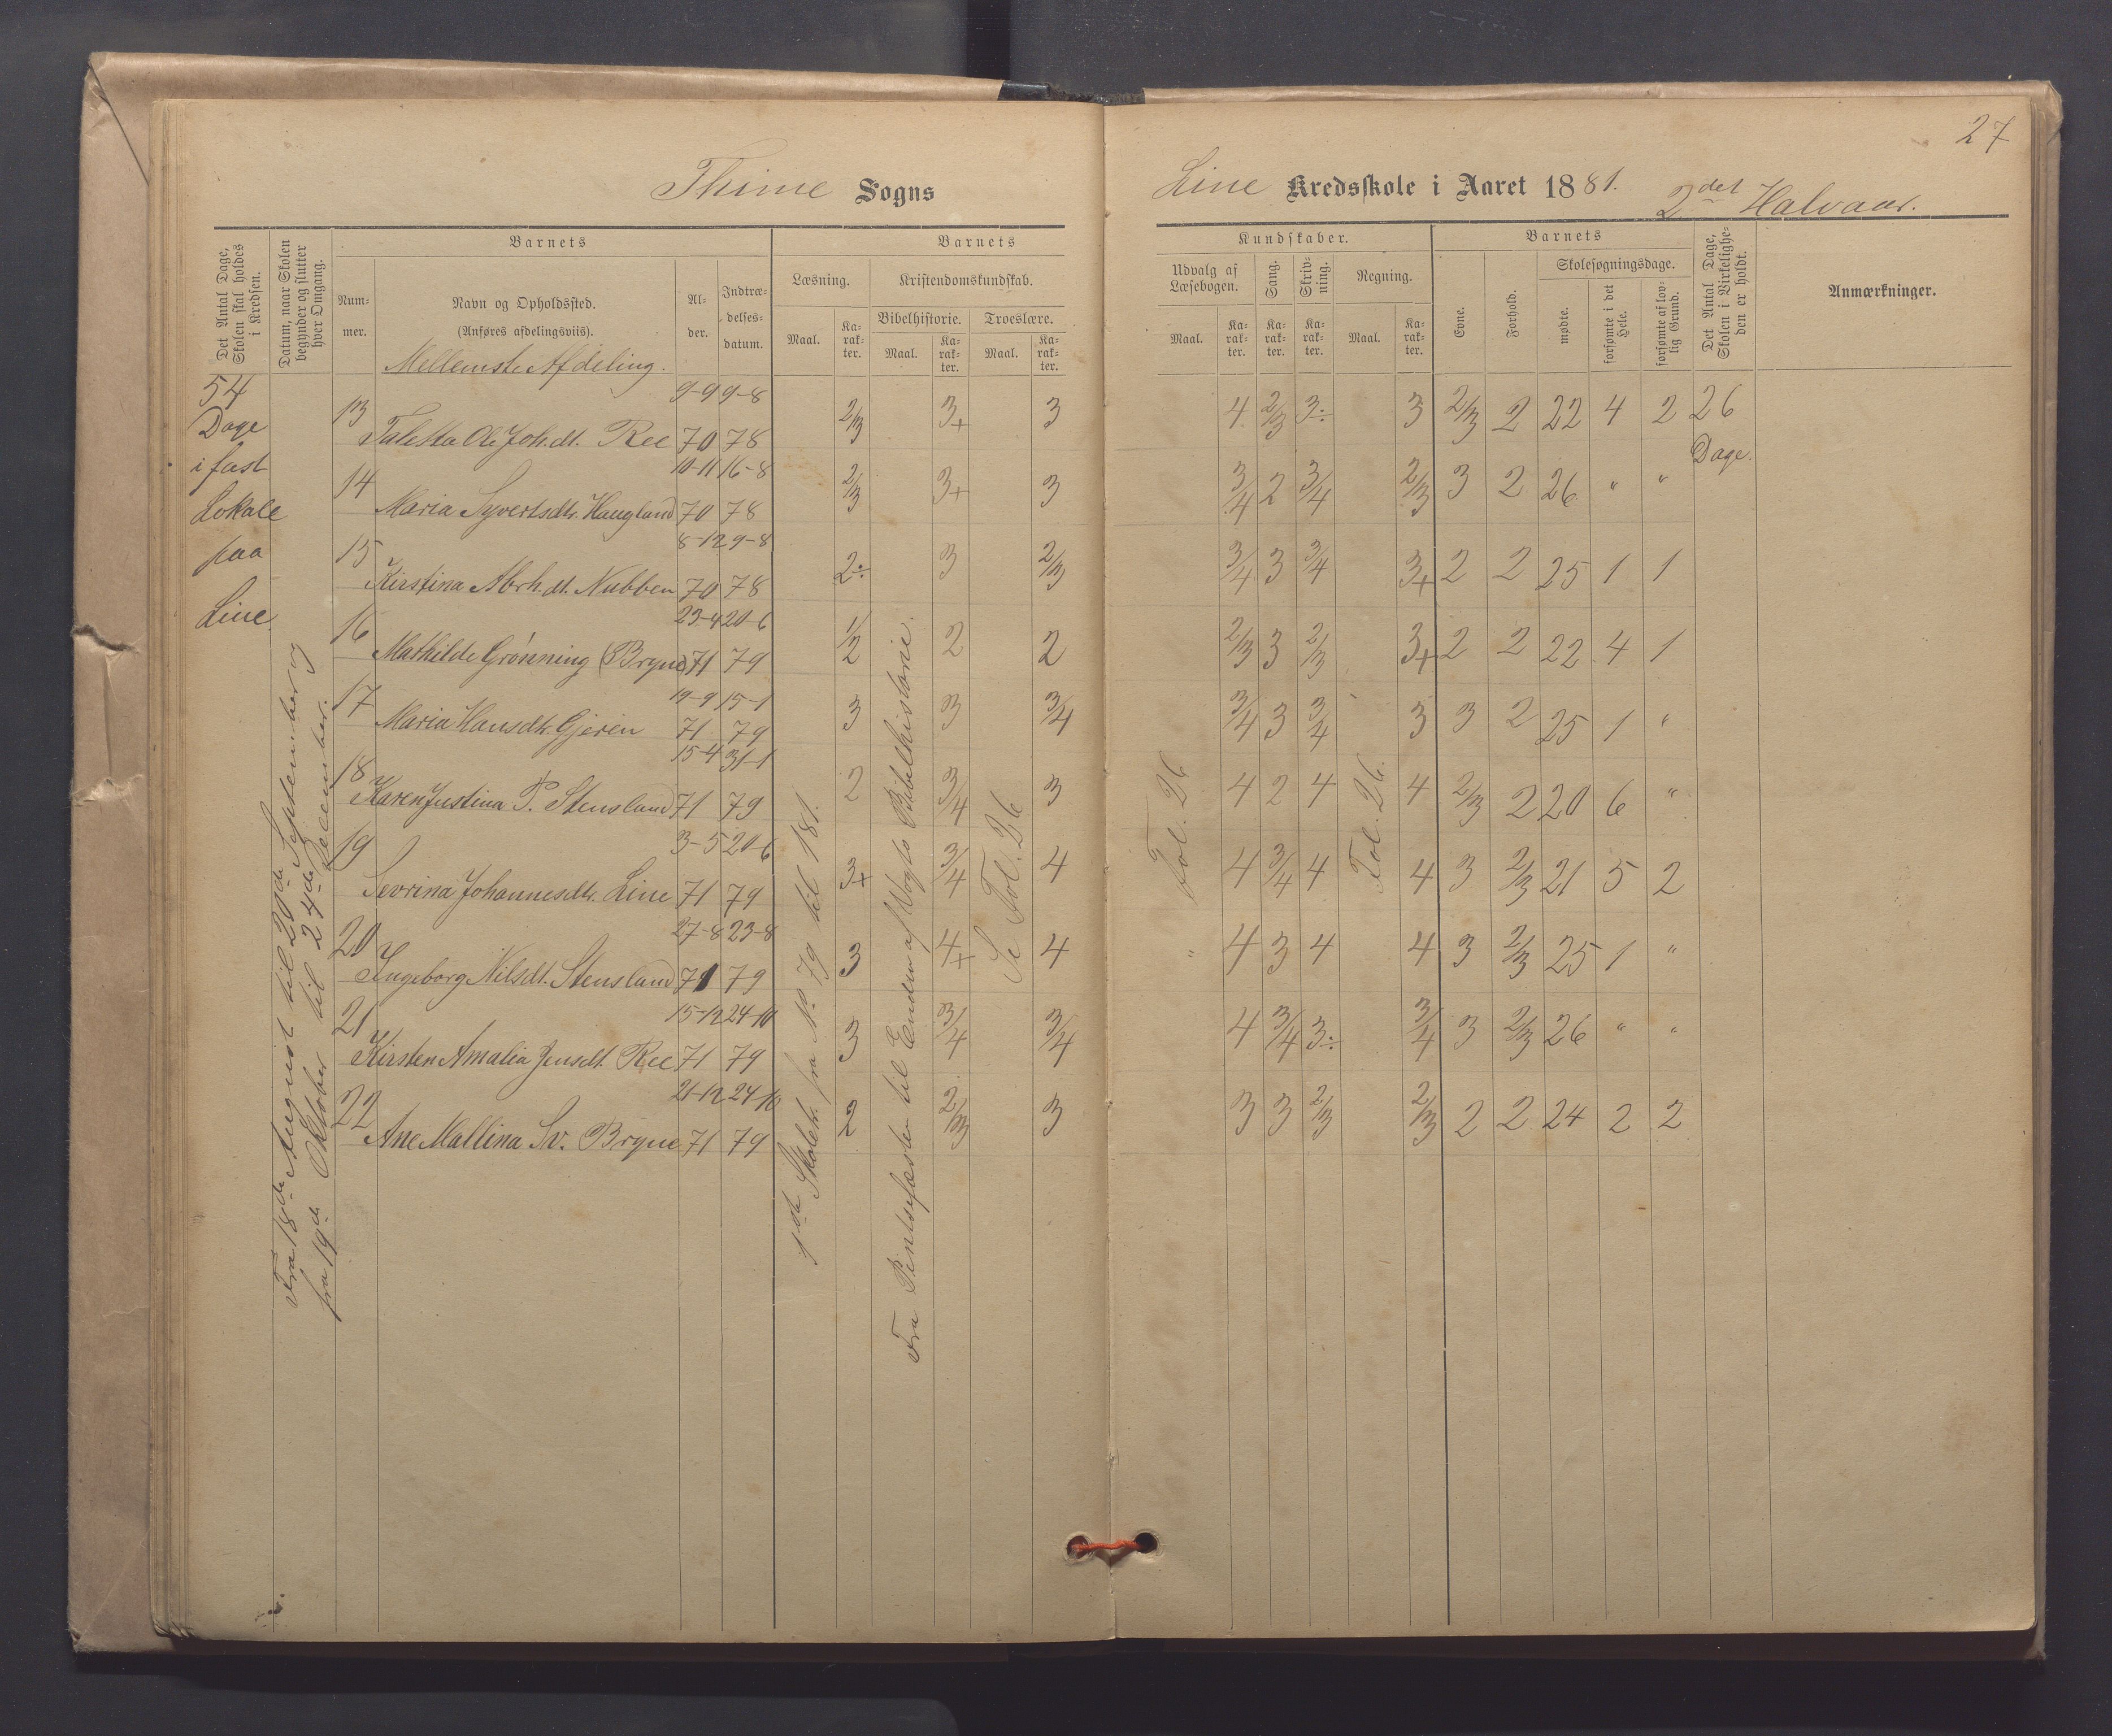 27
Thime Sogns
Line Kredsskole i Aaret 1881. 2det Halvaar.
Det Antal Dage, Skolen skal holdes i Kredsen.
Datum, naar Skolen begynder og slutter hver Omgang.
Barnets
Num-
mer.
Navn og Opholdssted.
(Anføres afdelingsviis).
Mellemste Afdeling.
Al-
der.
Indtræ-
delses-
datum.
Barnets
Læsning.
Maal.
Ka-
rak-
ter.
Kristendomskundskab.
Bibelhistorie.
Troeslære.
Maal.
Ka-
rak-
ter.
Maal.
Ka-
rak-
ter.
Kundskaber.
Udvalg af
Læsebogen.
Maal.
Ka-
rak-
ter.
Sang.
Ka-
rak-
ter.
Skriv-
ning.
Ka-
rak-
ter.
Regning.
Maal.
Ka-
rak-
ter.
Barnets
Evne.
Forhold.
Skolesøgningsdage.
mødte.
forsømte i det Hele.
forsømte af lov-lig Grund.
Det Antal Dage, Skolen i Virkelighe-den er holdt.
Anmærkninger.
54
Dage
i fast
Lokale
paa
Line.
Fra 18de August til 20de September og
fra 19de Oktober til 24de December.
1ste Skolek. fra No 79 til 181.
Fra Pintsefæsten til Enden af Vogts Bibelhistorie.
Se Fol. 26
Fol. 26
Fol. 26.
26
Dage.
13 Taletta Ole Joh.dt. Ree 9-9 70 9-8 78 2/3 3+ 3 4 2/3 3÷ 3 2/3 2 22 4 2
14 Maria Syvertsdtr. Haugland 10-11 70 16-8 78 2/3 3+ 3 3/4 2 3/4 2/3 3 2 26 " "
15 Kirstina Abrh.dt. Nubben 8-12 70 9-8 78 2÷ 3 2/3 3/4 3 3/4 3+ 2 2 25 1 1
16 Mathilde Grønning (Bryne) 23-4 71 20-6 79 1/2 2 2 2/3 3 2/3 3+ 2 2 22 4 1
17 Maria Hansdtr. Gjeren 19-9 71 15-1 79 3 3 3/4 3/4 3 3/4 3 3 2 25 1 "
18 Karen Justina P. Stensland 15-4 71 31-1 79 2 3/4 3 4 2 4 4 2/3 2 20 6 "
19 Sevrina Johannesdtr. Line 3-5 71 20-6 79 3+ 3/4 4 4 3/4 4 4 3 2/3 21 5 2
20 Ingeborg Nilsdt. Stensland 27-8 71 23-8 79 3 4+ 4 " 4 3 4 4 3 2/3 25 1 "
21 Kirsten Amalia Jensdt. Ree 15-12 71 24-10 79 3 3/4 3/4 4 3/4 3÷ 3/4 3 2/3 26 " "
22 Ane Mallina Sv. Bryne 21-12 71 24-10 79 2 2/3 3 3 3 2/3 2/3 2 2 24 2 2